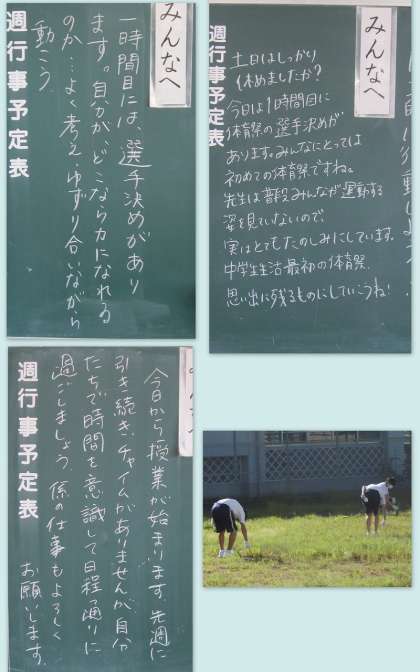 みんなへ
一時間目には、選手決めがあり
ます。自分が、どこなら力になれる
のか…よく考え、ゆずり合いながら
動こう。
週行事予定表
みんなへ
土日はしっかり
休めましたか？
今日は1時間目に
体育祭の選手決めが
あります。みんなにとっては
初めての体育祭ですね。
先生は普段みんなが運動する
姿を見ていないので
実はとてもたのしみにしています。
中学生生活最初の体育祭
思い出に残るものにしていこうね！
週行事予定表
今日から授業が始まります。先週に
引き続き、チャイムがありませんが、自分
たちで時間を意識して日程通りに
過ごしましょう。係の仕事もよろしく
お願いします。
週行事予定表